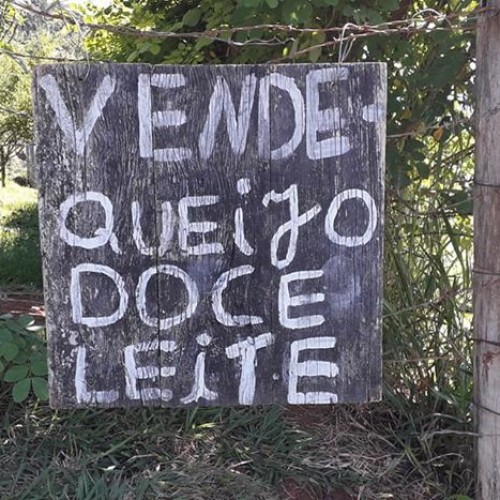 VENDE-
QUEiJO
DOCE
LEiTE